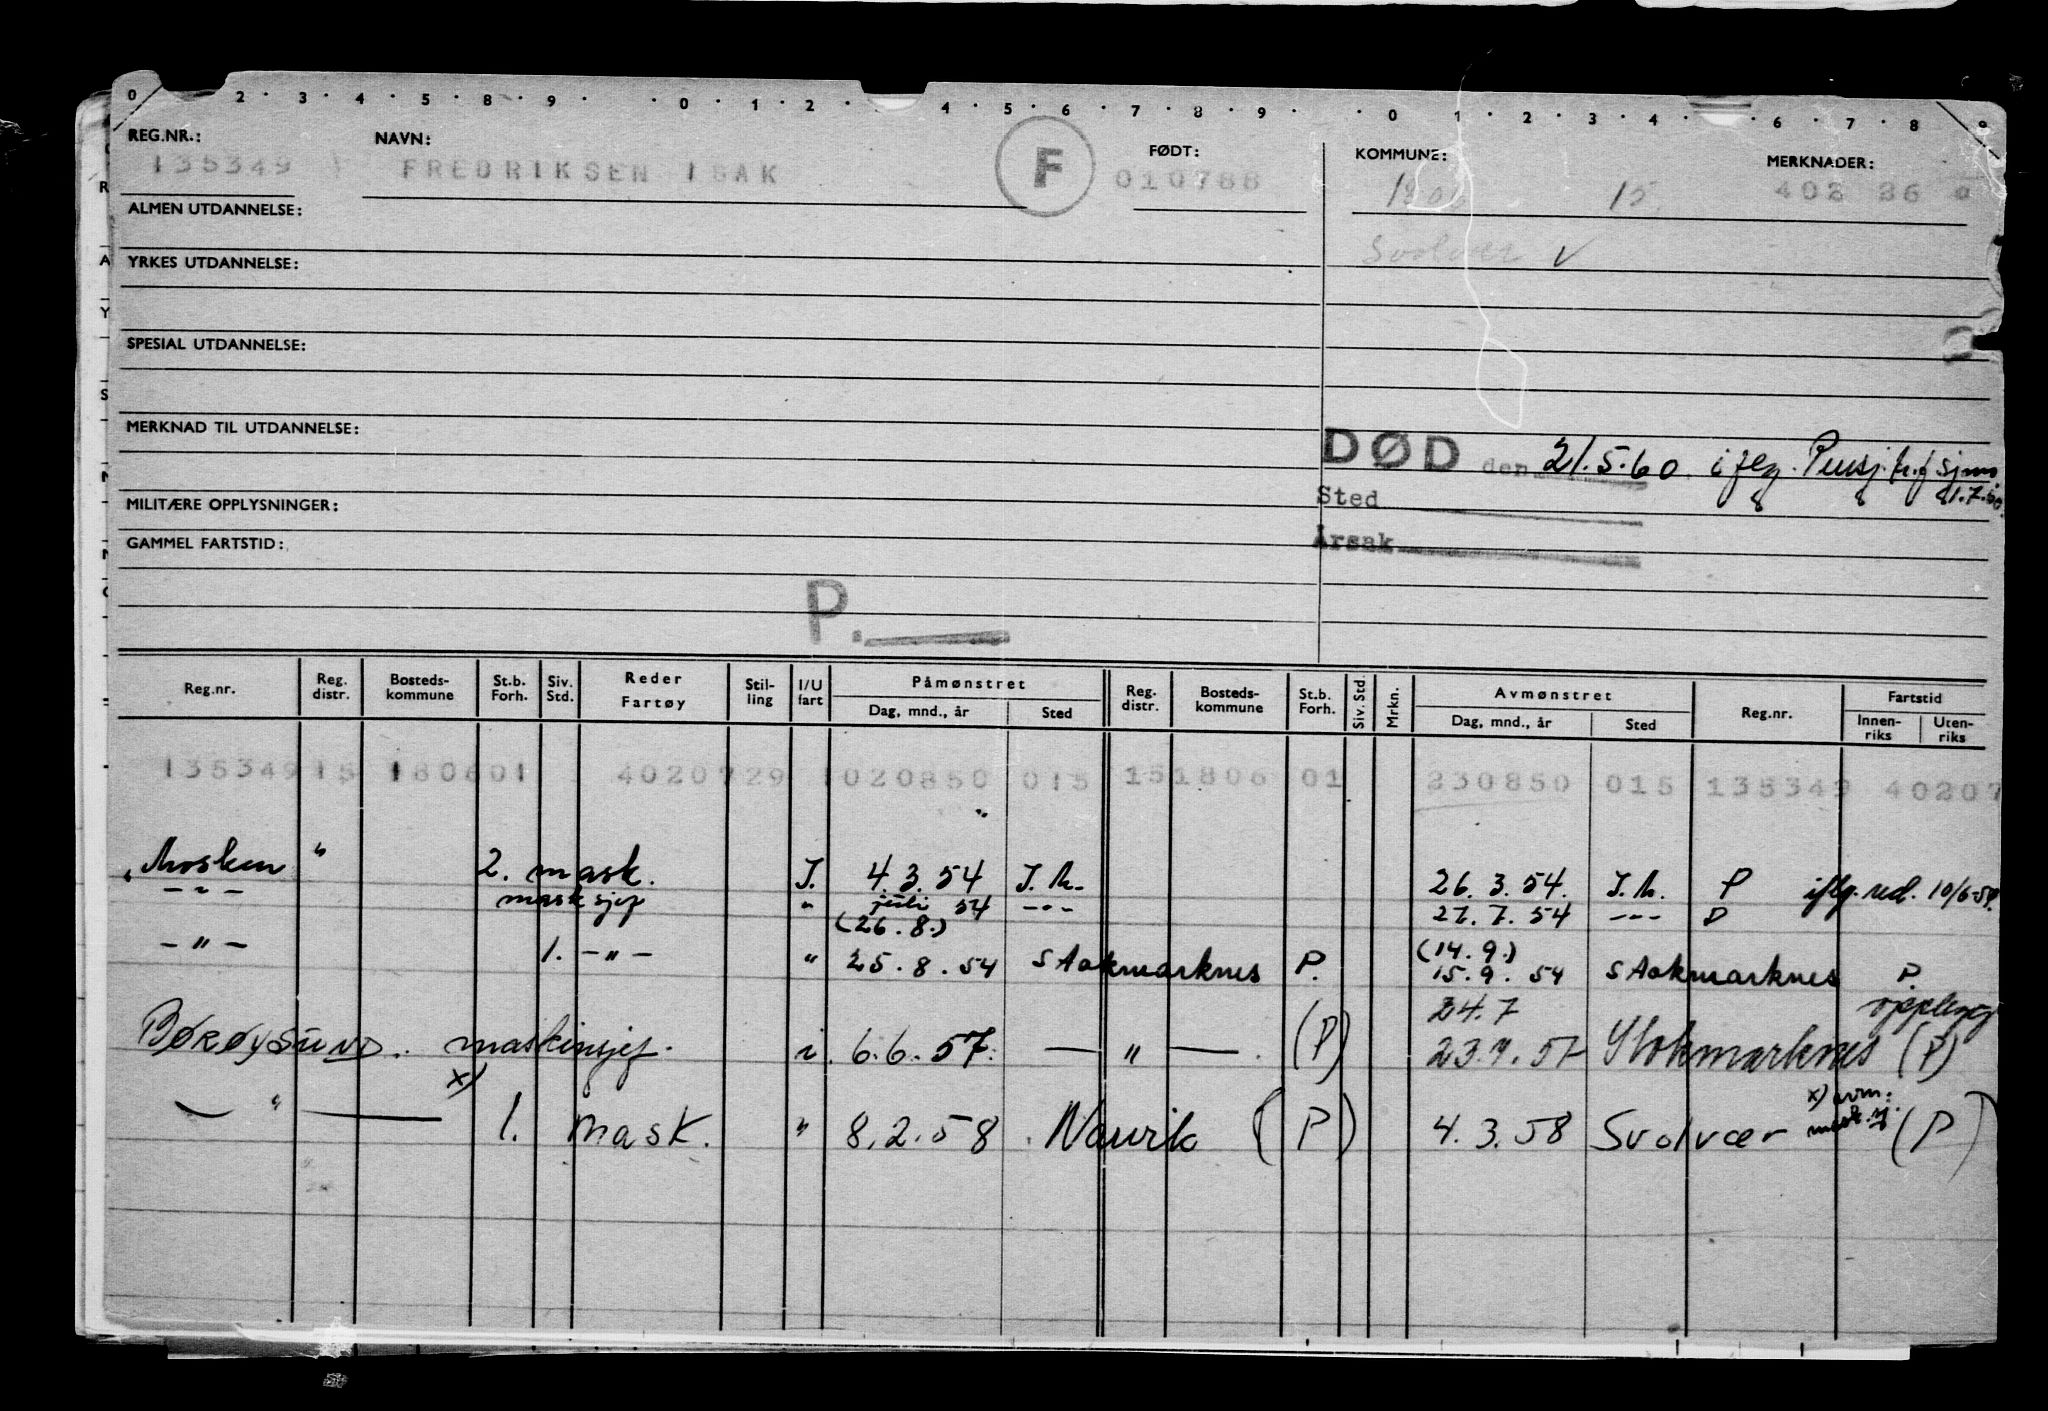 0 2 · 3 · 4 · 5 · 8 · 9 · · 0 · 1 · 2 · 4 · 5 · 6 · 7 · 8 · 9 · · 0 · 1 · 2 · 3 · 4 · 6 · 7 · 8 · 9
REG.NR.: NAVN: FØDT: KOMMUNE: MERKNADER:
135349 FREDRIKSEN ISAK F 010788 15 402
ALMEN UTDANNELSE:
Svolvær V
YRKES UTDANNELSE:
SPESIAL UTDANNELSE:
MERKNAD TIL UTDANNELSE:
DØD den 21.5.60 iflg. Pensj.tr.f sjm.
1.7.60.
Sted
MILITÆRE OPPLYSNINGER:
Årsak
GAMMEL FARTSTID:
P.
Reg.nr. Reg. distr. Bosteds-kommune St.b. Forh. Siv. Std. Reder Fartøy Stil-ling I/U fart Påmønstret Dag, mnd., år Sted Reg. distr. Bosteds-kommune St.b. Forh. Siv. Std. Mrkn. Avmønstret Dag, mnd., år Sted Reg.nr. Fartstid Innen-riks Uten-riks
135349 15 180601 4020729 1020850 015 151806 01 230850 015 135349 40207
Mosken " 2. mask. I. 4.3.54 I.M. 26.3.54. I.M. P iflg. red. 10/6-58.
-"- mask sjef " juli 54 -"- 27.7.54 --- P
(26.8.) (14.9.)
-"- 1. -"- " 25.8.54 Stokmarknes P. 15.9.54 Stokmarknes P.
24.7 oppling
BØRØYSUND. maskinsjef. i. 6.6.57. —"—. (P) 23.7.57 Stokmarknes (P)
x) x) avm:
—"— 1. mask. " 8.2.58 Narvik (P) 4.3.58 Svolvær mask.sj. (P)